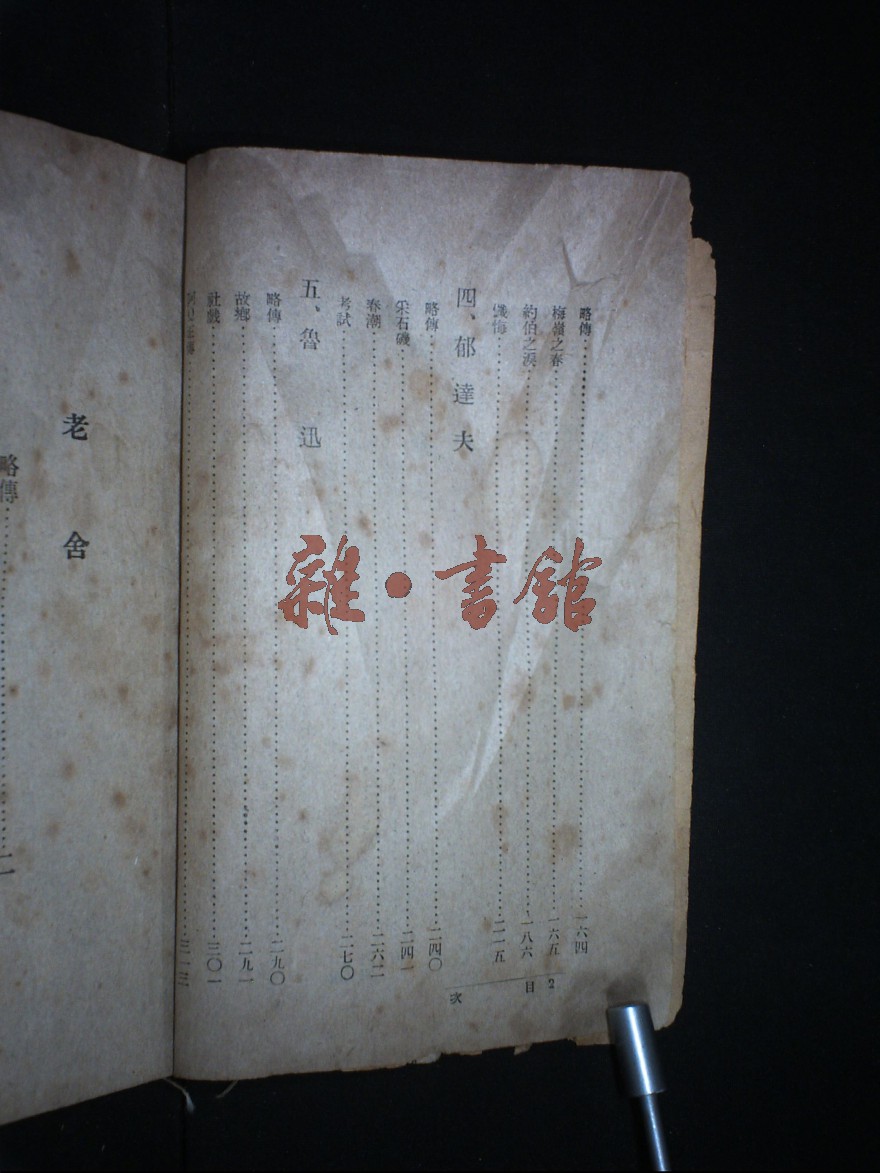 略傳……一六四
梅嶺之春……一六五
約伯之淚……一八六
懺悔……二一五
四、郁達夫
略傳……二四〇
采石磯……二四一
春潮……二六二
考試……二七〇
五、魯迅
略傳……二九〇
故鄉……二九一
社戲……三〇一
……三一三
目次
2
老舍
略傳……
雜·書館